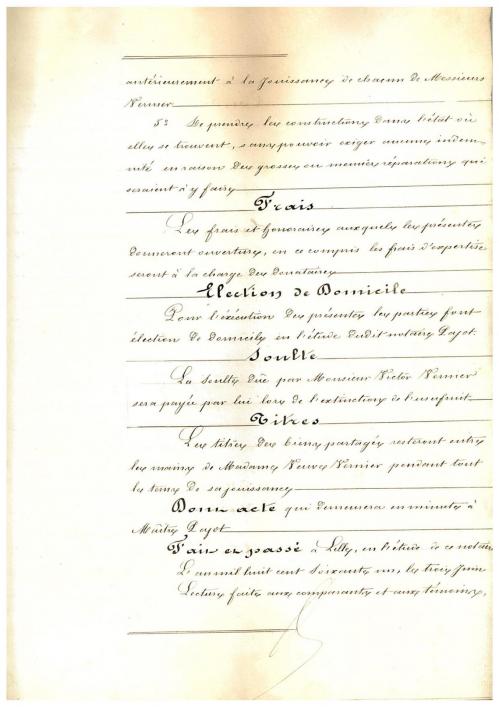 antérieurement à la Jouissance de chacun de Messieurs
Vernier
5º De prendre les constructions dans l'état où
elles se trouvent, sans pouvoir exiger aucune indem-
nité en raison des grosses ou menues réparations qui
seraient à y faire
Frais
Les frais et honoraires auxquels les présentes
donneront ouverture, en ce compris les frais d'expertise
seront à la charge des donataires
Election de Domicile
Pour l'exécution des présentes les parties font
élection de domicile en l'étude dudit notaire Dajot.
Soulte
La Soulte due par Monsieur Victor Vernier
sera payée par lui lors de l'extinction de l'usufruit
Titres
Les titres des biens partagés resteront entre
les mains de Madame Veuve Vernier pendant tout
le tems de sa jouissance
Dont acte qui demeurera en minute à
Maître Dajot
Fait et passé à Lille, en l'étude de ce notaire
L'an mil huit cent soixante un, le trois Juin
Lecture faite aux comparants et aux témoins,